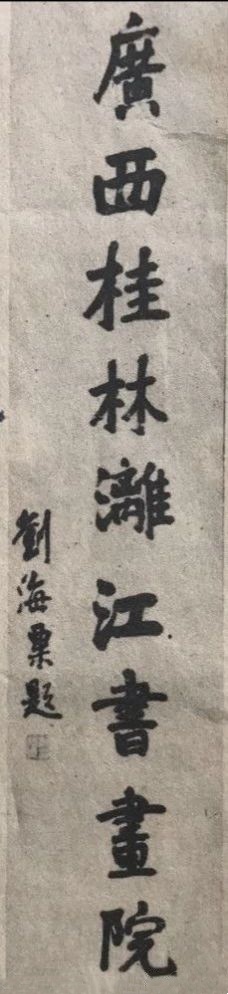 廣西桂林灕江書畫院
劉海粟題